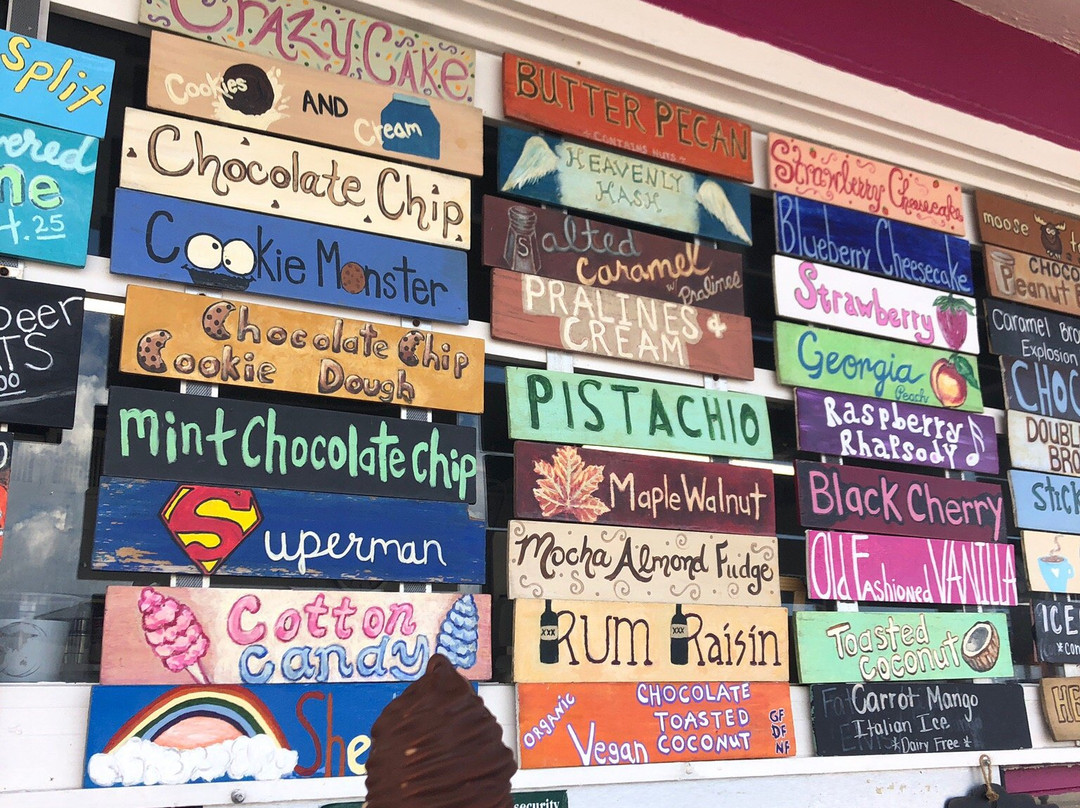 Split
vered
me
4.25
Beer
TS
00
CRAZY CAKE
Cookies AND Cream
Chocolate Chip
Cookie Monster
Chocolate Chip
Cookie Dough
mint Chocolate chip
Superman
Cotton
Candy
She
BUTTER PECAN
CONTAINS NUTS
HEAVENLY
HASH
Salted
Caramel
w/ Pralines
PRALINES &
CREAM
PISTACHIO
Maple Walnut
Mocha Almond Fudge
XXX RUM XXX Raisin
ORGANIC
Vegan
CHOCOLATE
TOASTED
COCONUT
GF
DF
NF
security
Strawberry Cheesecake
Blueberry Cheesecake
Strawberry
Georgia
Peach
Raspberry
Rhapsody
Black Cherry
Old Fashioned VANILLA
Toasted
coconut
Carrot Mango
Italian Ice
*Dairy Free*
moose t
CHOCO
Peanut
Caramel Bro
Explosion
CHOC
DOUBL
BRO
Stick
ICE
*con
HE